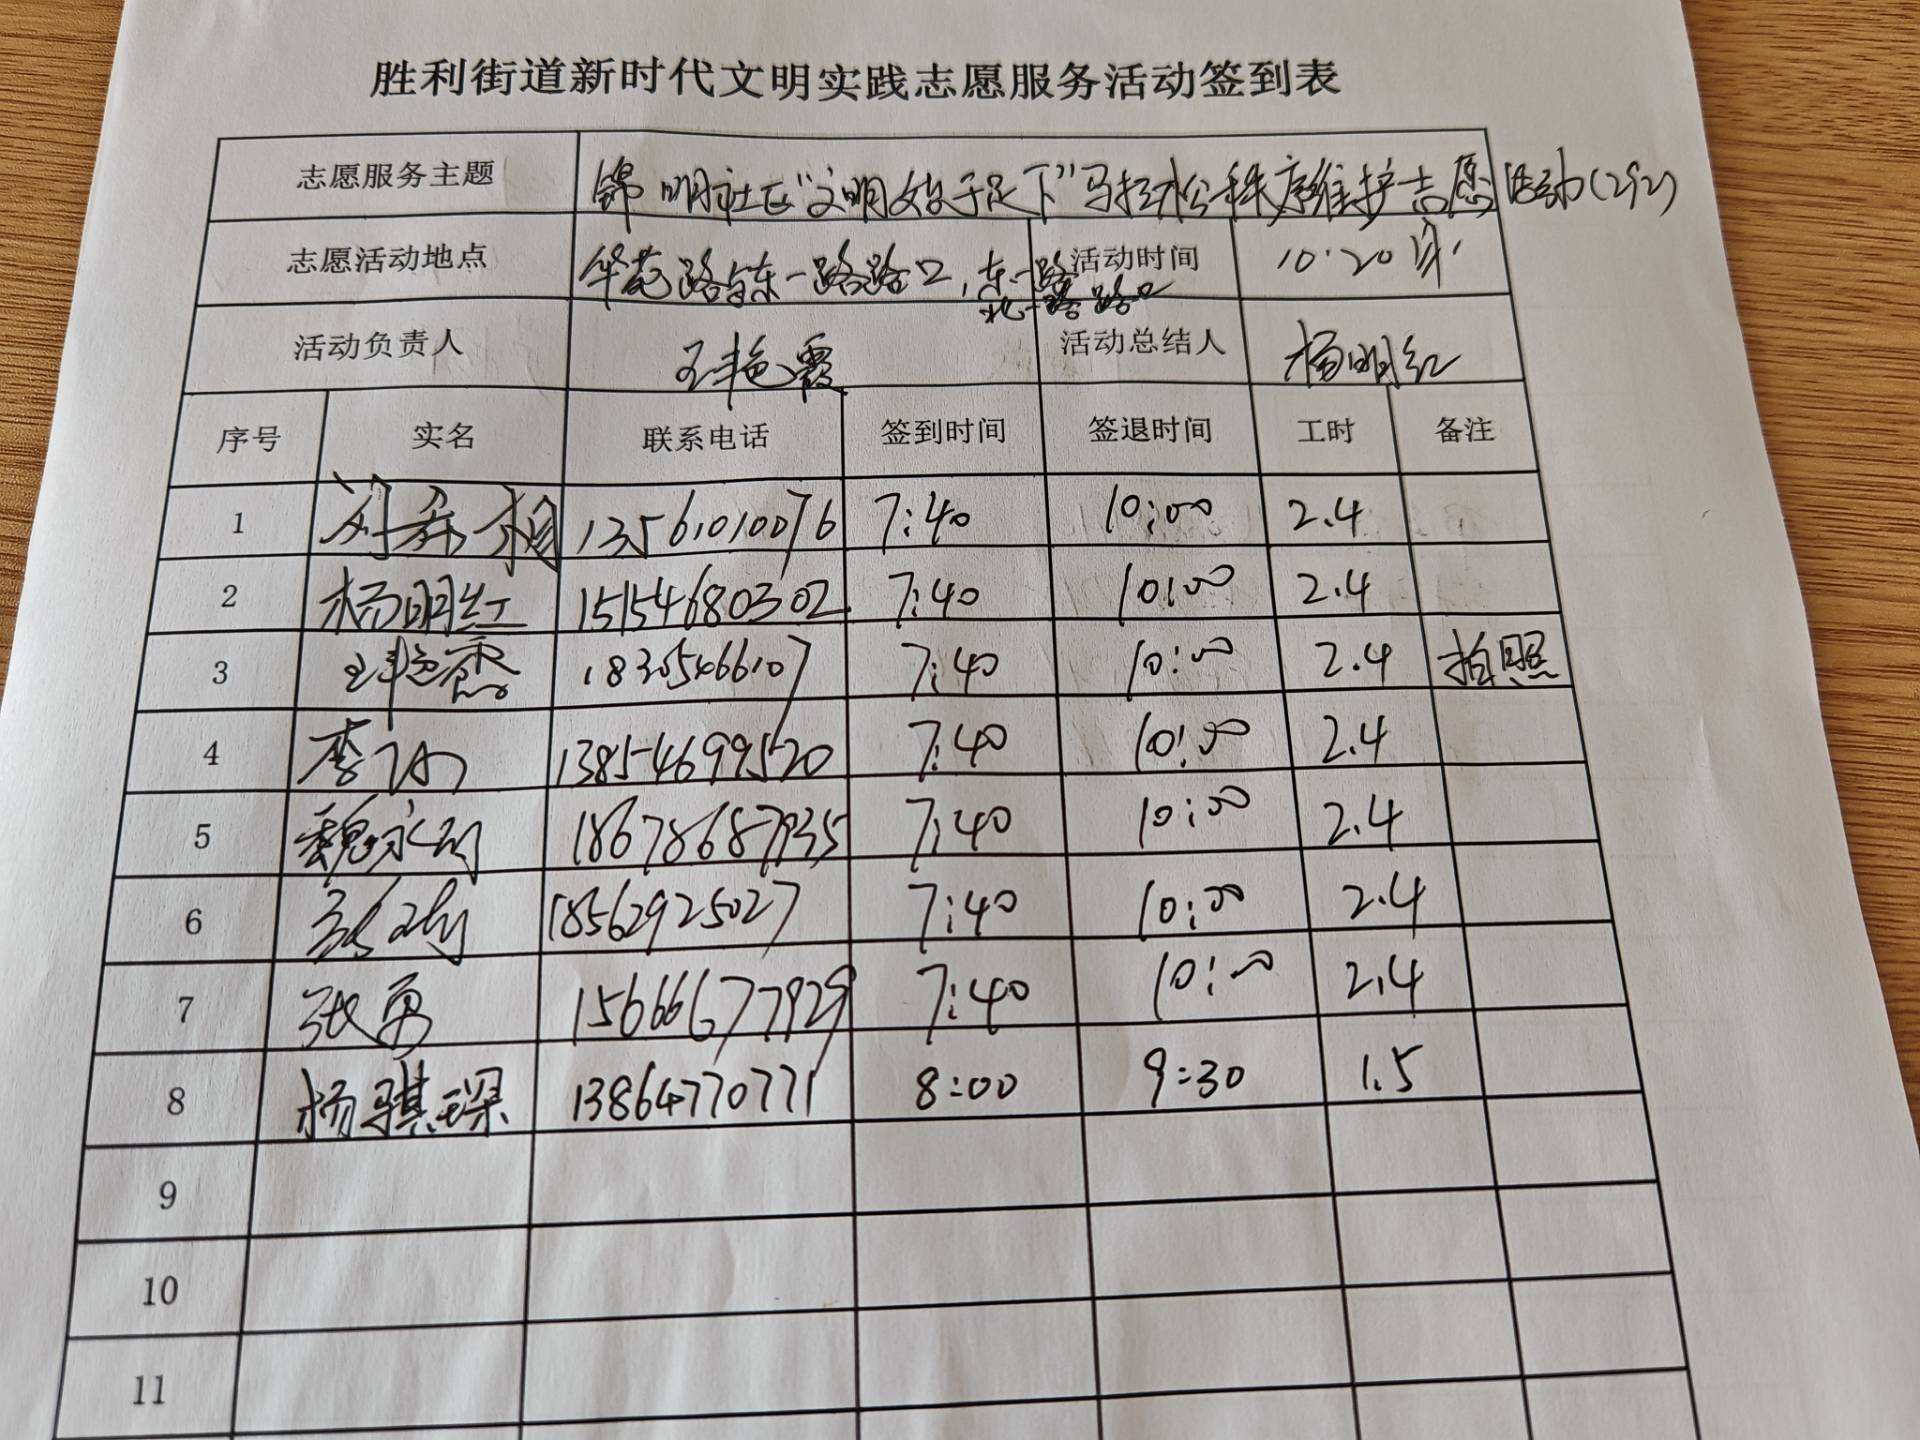 胜利街道新时代文明实践志愿服务活动签到表
志愿服务主题 锦明社区“文明始于足下”马拉松秩序维护志愿活动(292)
志愿活动地点 华苑路与东一路路口,东一路北一路路口 活动时间 10.20
活动负责人 王艳霞 活动总结人 杨明红
序号 实名 联系电话 签到时间 签退时间 工时 备注
1 13561010076 7:40 10:00 2.4
2 杨明红 15154680302 7:40 10:00 2.4
3 王艳霞 18305466107 7:40 10:00 2.4 拍照
4 李 13854699520 7:40 10:00 2.4
5 魏永 18678687935 7:40 10:00 2.4
6 18562925027 7:40 10:00 2.4
7 张勇 15666677929 7:40 10:00 2.4
8 杨骐琛 13864770771 8:00 9:30 1.5
9
10
11